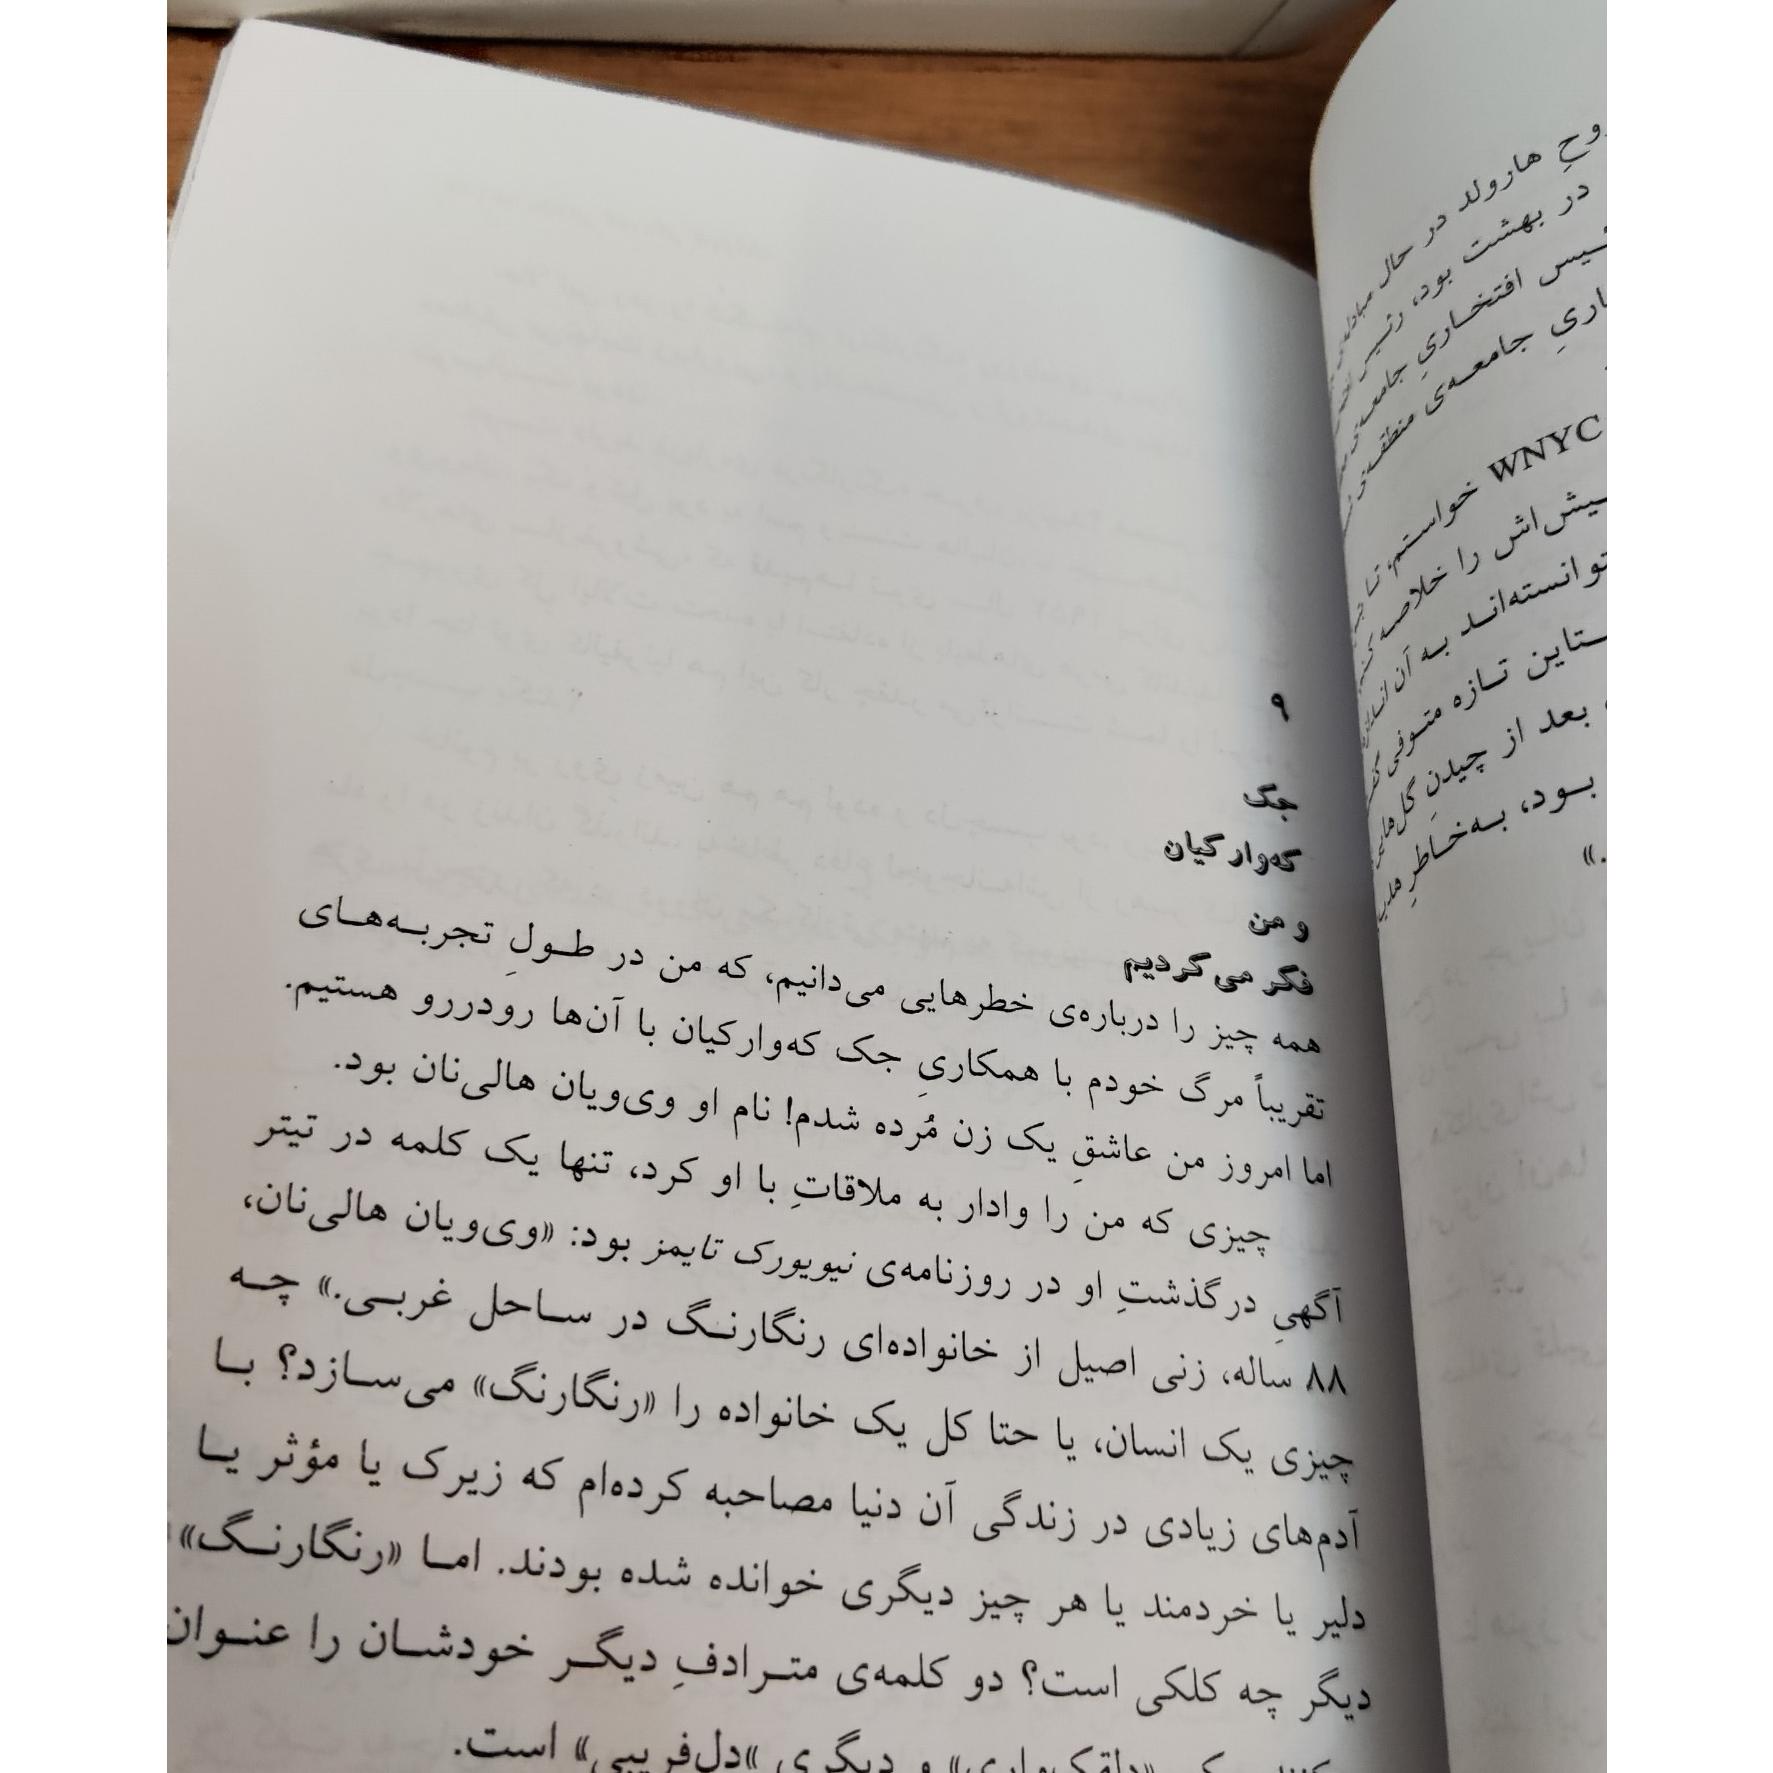 روحِ هارولد در حال
در بهشت بود، رئیس
افتخاریِ جامعه‌ی
جامعه‌ی منطقه‌ی
WNYC خواستم، تا
را خلاصه
به آن
تازه متوفی
بعد از چیدنِ گل‌های
بود، به‌خاطرِ
.»
۹
جک
که‌وارکیان
و من
فکر می‌کردیم
همه چیز را درباره‌ی خطرهایی می‌دانیم، که من در طولِ تجربه‌های
تقریباً مرگ خودم با همکاریِ جک که‌وارکیان با آن‌ها رودررو هستیم.
اما امروز من عاشقِ یک زن مُرده شدم! نام او وی‌ویان هالی‌نان بود.
چیزی که من را وادار به ملاقاتِ با او کرد، تنها یک کلمه در تیتر
آگهیِ درگذشتِ او در روزنامه‌ی نیویورک تایمز بود: «وی‌ویان هالی‌نان،
۸۸ ساله، زنی اصیل از خانواده‌ای رنگارنگ در ساحل غربی.» چه
چیزی یک انسان، یا حتا کل یک خانواده را «رنگارنگ» می‌سازد؟ با
آدم‌های زیادی در زندگی آن دنیا مصاحبه کرده‌ام که زیرک یا مؤثر یا
دلیر یا خردمند یا هر چیز دیگری خوانده شده بودند. اما «رنگارنگ»
دیگر چه کلکی است؟ دو کلمه‌ی مترادفِ دیگر خودشان را عنوان
و دیگری «دل‌فریبی» است.